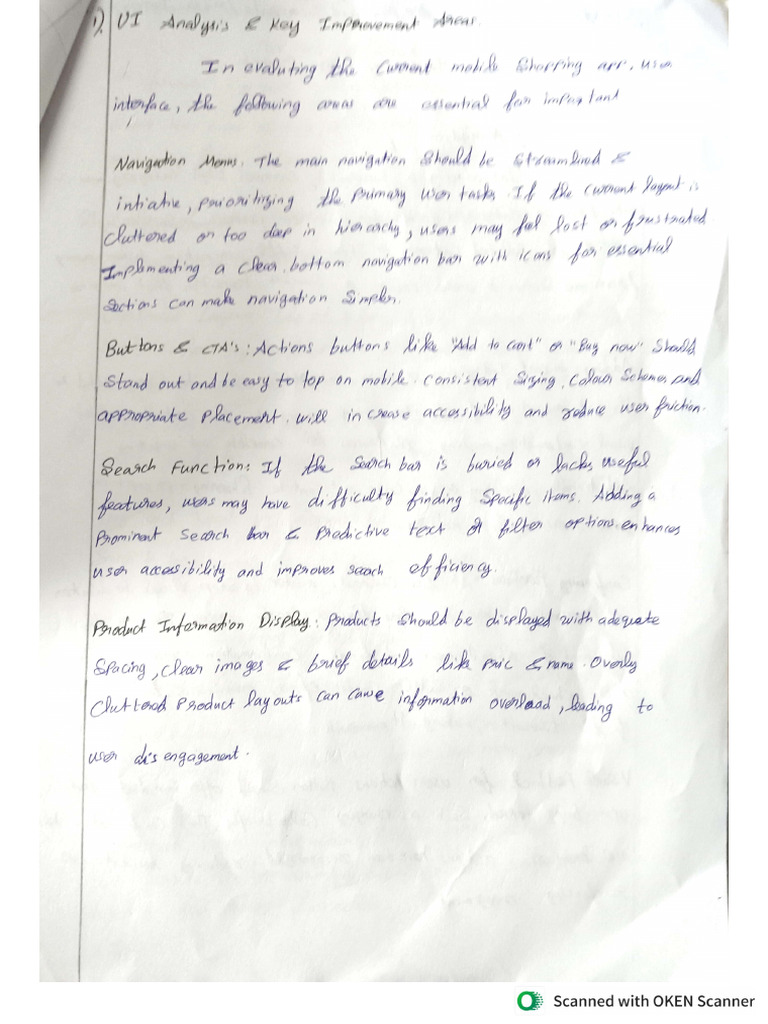 1). UI Analysis & Key Improvement Areas.
In evaluting the current mobile shopping app, user
interface, the following areas are essential for important
Navigation Menus. The main navigation should be streamlined &
intiative, prioritizing the primary user tasks. If the current layout is
cluttered or too deep in hierarchy, users may feel lost or frustrated.
Implementing a clear bottom navigation bar with icons for essential
sections can make navigation simpler.
Buttons & CTA's : Actions buttons like "Add to cart" or "Buy now" should
stand out and be easy to top on mobile. consistent sizing, colour schemes, and
appropriate placement. will increase accessibility and reduce user friction.
Search Function: If the search bar is buried or lacks useful
features, users may have difficulty finding specific items. Adding a
prominent search bar & predictive text or filter options enhances
user accessibility and improves seach efficiency.
Product Information Display : Products should be displayed with adequate
spacing, clear images & brief details like pric & name. Overly
cluttered product layouts can cause information overload, leading to
user disengagement.
Scanned with OKEN Scanner